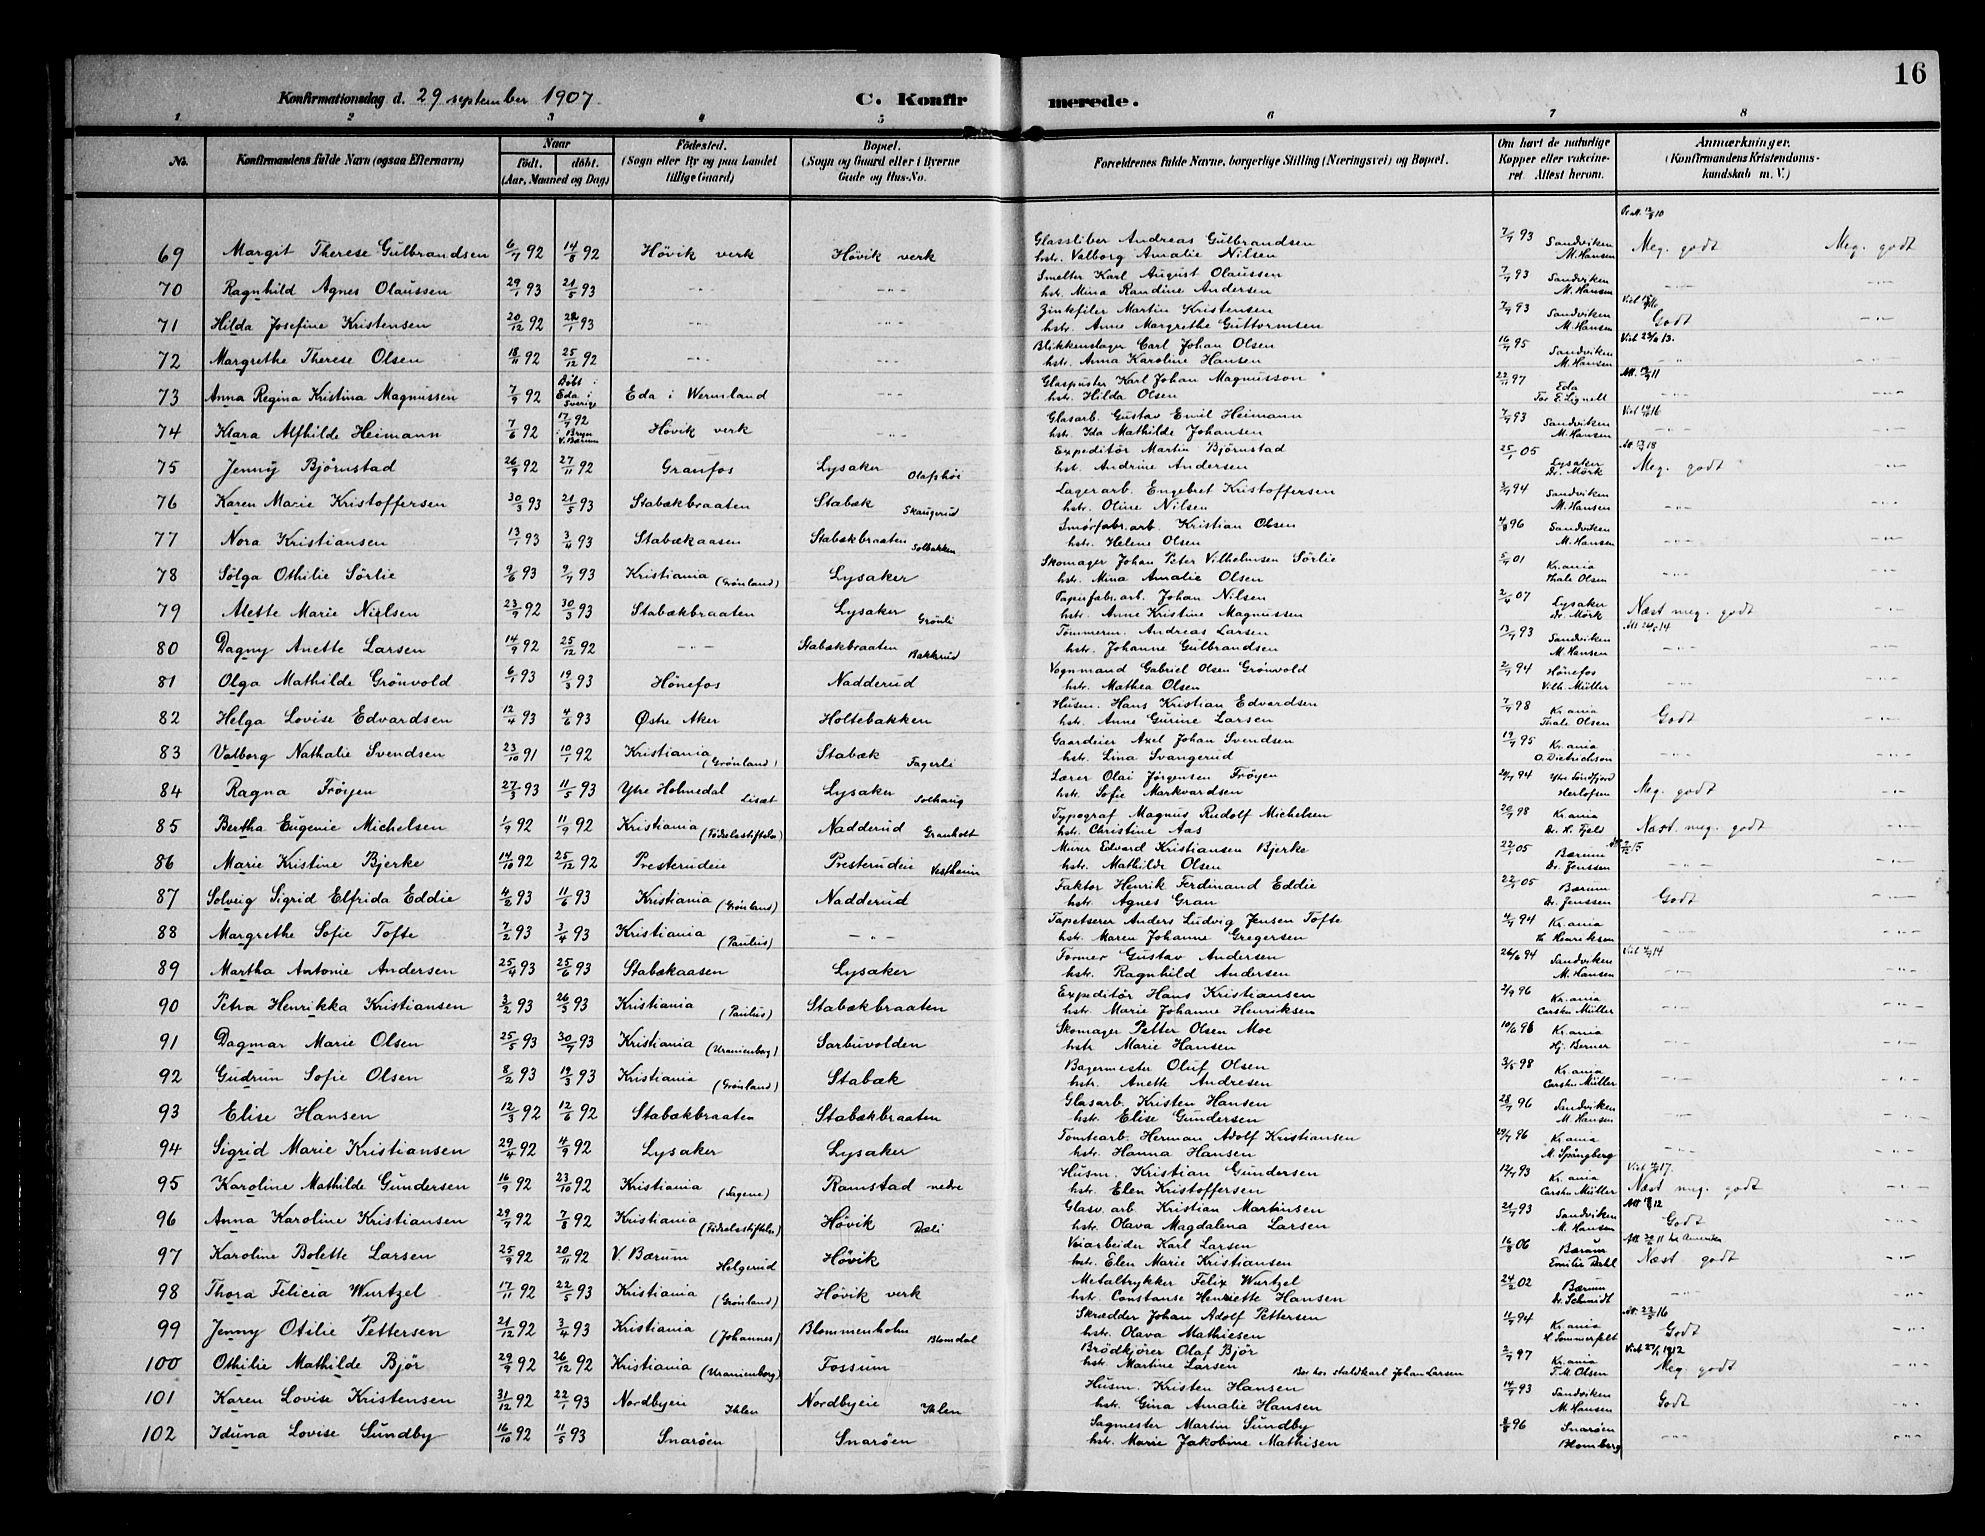 16
Konfirmationsdag d. 29 september 1907. C. Konfirmerede.
1 2 3 4 5 6 7 8
No. Konfirmandens fulde Navn (ogsaa Efternavn) Naar født. døbt. (Aar, Maaned og Dag) Fødested. (Sogn eller By og paa Landet tillige Gaard) Bopæl. (Sogn og Gaard eller i Byerne Gade og Hus-No. Forældrenes fulde Navne, borgerlige Stilling (Næringsvei) og Bopæl. Om havt de naturlige Kopper eller vakcineret. Attest herom. Anmærkninger. (Konfirmandens Kristendomskundskab m. V.)
69 Margit Therese Gulbrandsen 6/7 92 14/8 92 Hövik verk Hövik verk Glassliber Andreas Gulbrandsen hstr. Valborg Amalie Nilsen 7/7 93 Sandviken M. Hansen Meg. godt Meg. godt
70 Ragnhild Agnes Olaussen 29/1 93 21/5 93 -"- -"- Smelter Karl August Olaussen hstr. Mina Randine Andersen 7/7 93 Sandviken M. Hansen -"- -"-
71 Hilda Josefine Kristensen 20/12 92 22/1 93 -"- -"- Zinkfiler Martin Kristensen hstr. Anne Margrethe Guttormsen 7/7 93 Sandviken M. Hansen Godt -"-
72 Margrethe Therese Olsen 18/11 92 25/12 92 -"- -"- Blikkenslager Carl Johan Olsen hstr. Anna Karoline Hansen 16/7 95 Sandviken M. Hansen -"- -"-
73 Anna Regina Kristina Magnussen 7/9 92 Döbt i Eda i Sverige Eda i Wermland -"- Glaspuster Karl Johan Magnusson hstr. Hilda Olsen 22/11 97 Eda Tor E. Lignell -"- -"-
74 Klara Alfhilde Heimann 7/6 92 17/7 92 i Bryn V. Bærum Hövik verk -"- Glasarb. Gustav Emil Heimann hstr. Ida Mathilde Johansen 7/7 93 Sandviken M. Hansen -"- -"-
75 Jenny Björnstad 26/9 92 27/11 92 Granfos Lysaker Olafshöi Expeditör Martin Björnstad hst. Andrine Andersen 25/1 05 Lysaker Dr. Mörk Meg. godt -"-
76 Karen Marie Kristoffersen 30/3 93 21/5 93 Stabækbraaten Stabæk Skaugerud Lagerarb. Engebret Kristoffersen hstr. Oline Nilsen 3/7 94 Sandviken M. Hansen -"- -"-
77 Nora Kristiansen 13/1 93 3/4 93 Stabækaasen Stabækbraaten Solbakken Smörfabr.arb. Kristian Olsen hstr. Helene Olsen 4/8 96 Sandviken M. Hansen -"- -"-
78 Sölga Othilie Sörlie 9/6 93 9/7 93 Kristiania (Grönland) Lysaker Skomager Johan Peter Vilhelmsen Sörlie hstr. Mina Amalie Olsen 5/7 01 Kr.ania Thale Olsen -"- -"-
79 Alette Marie Nielsen 23/9 92 30/3 93 Stabækbraaten Lysaker Grönli Papirfabr.arb. Johan Nilsen hstr. Anne Kristine Magnussen 2/4 07 Lysaker Dr. Mörk Næst meg. godt -"-
80 Dagny Anette Larsen 14/9 92 25/12 92 -"- Stabækbraaten Bakkerud Tömmerm. Andreas Larsen hstr. Johanne Gulbrandsen 13/7 93 Sandviken M. Hansen -"- -"-
81 Olga Mathilde Grönvold 6/1 93 19/3 93 Hönefos Nadderud Vognmand Gabriel Olsen Grönvold hstr. Mathea Olsen 2/7 94 Hönefos Vilh. Müller -"- -"-
82 Helga Lovise Edvardsen 12/4 93 4/6 93 Østre Aker Holtebakken Husm. Hans Kristian Edvardsen hstr. Anne Gurine Larsen 7/7 98 Kr.ania Thale Olsen Godt -"-
83 Valborg Nathalie Svendsen 23/10 91 10/1 92 Kristiania (Grönland) Stabæk Fagerli Gaardeier Axel Johan Svendsen hstr. Lina Svangerud 19/7 95 Kr.ania O. Dietrichson -"- -"-
84 Ragna Fröyen 27/3 93 11/5 93 Ytre Holmedal Lisæt Lysaker Solhaug Lærer Olai Jörgensen Fröyen hstr. Sofie Markvardsen 20/7 94 Ytre Söndfjord Herlofsen Meg. godt -"-
85 Bertha Eugenie Michelsen 1/9 92 11/9 92 Kristiania (Födselsstiftelse) Nadderud Granholt Typograf Magnus Rudolf Michelsen hstr. Christine Aas 20/9 98 Kr.ania Dr. K. Fjeld Næst. meg. godt -"-
86 Marie Kristine Bjerke 14/10 92 25/12 92 Presterudeie Presterudeie Vestheim Murer Edvard Kristiansen Bjerke hstr. Mathilde Olsen 22/1 05 Bærum Dr. Jenssen -"- -"-
87 Solveig Sigrid Elfrida Eddie 4/2 93 11/6 93 Kristiania (Grönland) Nadderud Faktor Henrik Ferdinand Eddie hstr. Agnes Gran 22/1 05 Bærum Dr. Jenssen Godt -"-
88 Margrethe Sofie Tofte 7/2 93 3/4 93 Kristiania (Paulus) -"- Tapetserer Anders Ludvig Jensen Tofte hstr. Maren Johanne Gregersen 4/7 94 Kr.ania Th Henriksen -"- -"-
89 Martha Antonie Andersen 25/4 93 25/6 93 Stabækaasen Lysaker Former Gustav Andersen hstr. Ragnhild Andersen 26/6 94 Sandviken M. Hansen -"- -"-
90 Petra Henrikka Kristiansen 3/2 93 26/3 93 Kristiania (Paulus) Stabækbraaten Expeditör Hans Kristiansen hstr. Marie Johanne Henriksen 2/9 96 Kr.ania Carsten Müller -"- -"-
91 Dagmar Marie Olsen 25/5 93 30/7 93 Kristiania (Uranienborg) Sarbuvolden Skomager Petter Olsen Moe hstr Marie Hansen 10/6 96 Kr.ania Hj. Berner -"- -"-
92 Gudrun Sofie Olsen 8/2 93 19/3 93 Kristiania (Grönland) Stabæk Bagermester Oluf Olsen hstr. Anette Andresen 3/5 98 Kr.ania Carsten Müller -"- -"-
93 Elise Hansen 12/3 92 12/6 92 Stabækbraaten Stabækbraaten Glasarb. Kristen Hansen hstr. Elise Gundersen 28/7 96 Sandviken M. Hansen -"- -"-
94 Sigrid Marie Kristiansen 29/4 92 4/9 92 Lysaker Lysaker Tomtearb. Herman Adolf Kristiansen hstr. Hanna Hansen 29/7 96 Kr.ania M. Spångberg -"- -"-
95 Karoline Mathilde Gundersen 16/9 92 23/10 92 Kristiania (Sagene) Ramstad nedre Husm. Kristian Gundersen hstr. Elen Kristoffersen 12/7 93 Kr.ania Carsten Müller Næst meg. godt -"-
96 Anna Karoline Kristiansen 29/7 92 7/8 92 Kristiania (Födselsstiftelse) Hövik Dæli Glasv. arb. Kristian Martinsen hstr. Olava Magdalena Larsen 21/7 93 Sandviken M. Hansen Godt -"-
97 Karoline Bolette Larsen 25/9 92 20/11 92 V. Bærum Helgerud Hövik Veiarbeider Karl Larsen hstr. Elen Marie Kristiansen 16/8 06 Bærum Emilie Dahl Næst godt -"-
98 Thora Felicia Wurtzel 17/11 92 22/5 93 Kristiania (Grönland) Hövik verk Metaltrykker Felix Wurtzel hstr. Constanse Henriette Hansen 24/2 02 Bærum Dr. Schmidt -"- -"-
99 Jenny Otilie Pettersen 21/12 92 3/4 93 Kristiania (Johannes) Blommenholm Blomdal Skrædder Johan Adolf Pettersen hstr. Olava Mathiesen 11/9 94 Kr.ania H Sommerfelt Godt -"-
100 Othilie Mathilde Björ 29/9 92 26/12 92 Kristiania (Uranienborg) Fossum Brödkjörer Olaf Björ hstr. Martine Larsen Bor hos staldkarl Johan Larsen 2/7 97 Kr.ania T. M. Olsen Meg godt -"-
101 Karen Lovise Kristensen 31/12 92 22/1 93 Nordbyeie Ihlen Nordbyeie Ihlen Husm. Kristen Hansen hstr. Gina Amalie Hansen 14/7 93 Sandviken M. Hansen Godt -"-
102 Iduna Lovise Sundby 16/10 92 11/5 93 Snaröen Snaröen Sagmester Martin Sundby hstr. Marie Jakobine Mathisen 8/8 96 Snaröen Homberg -"- -"-